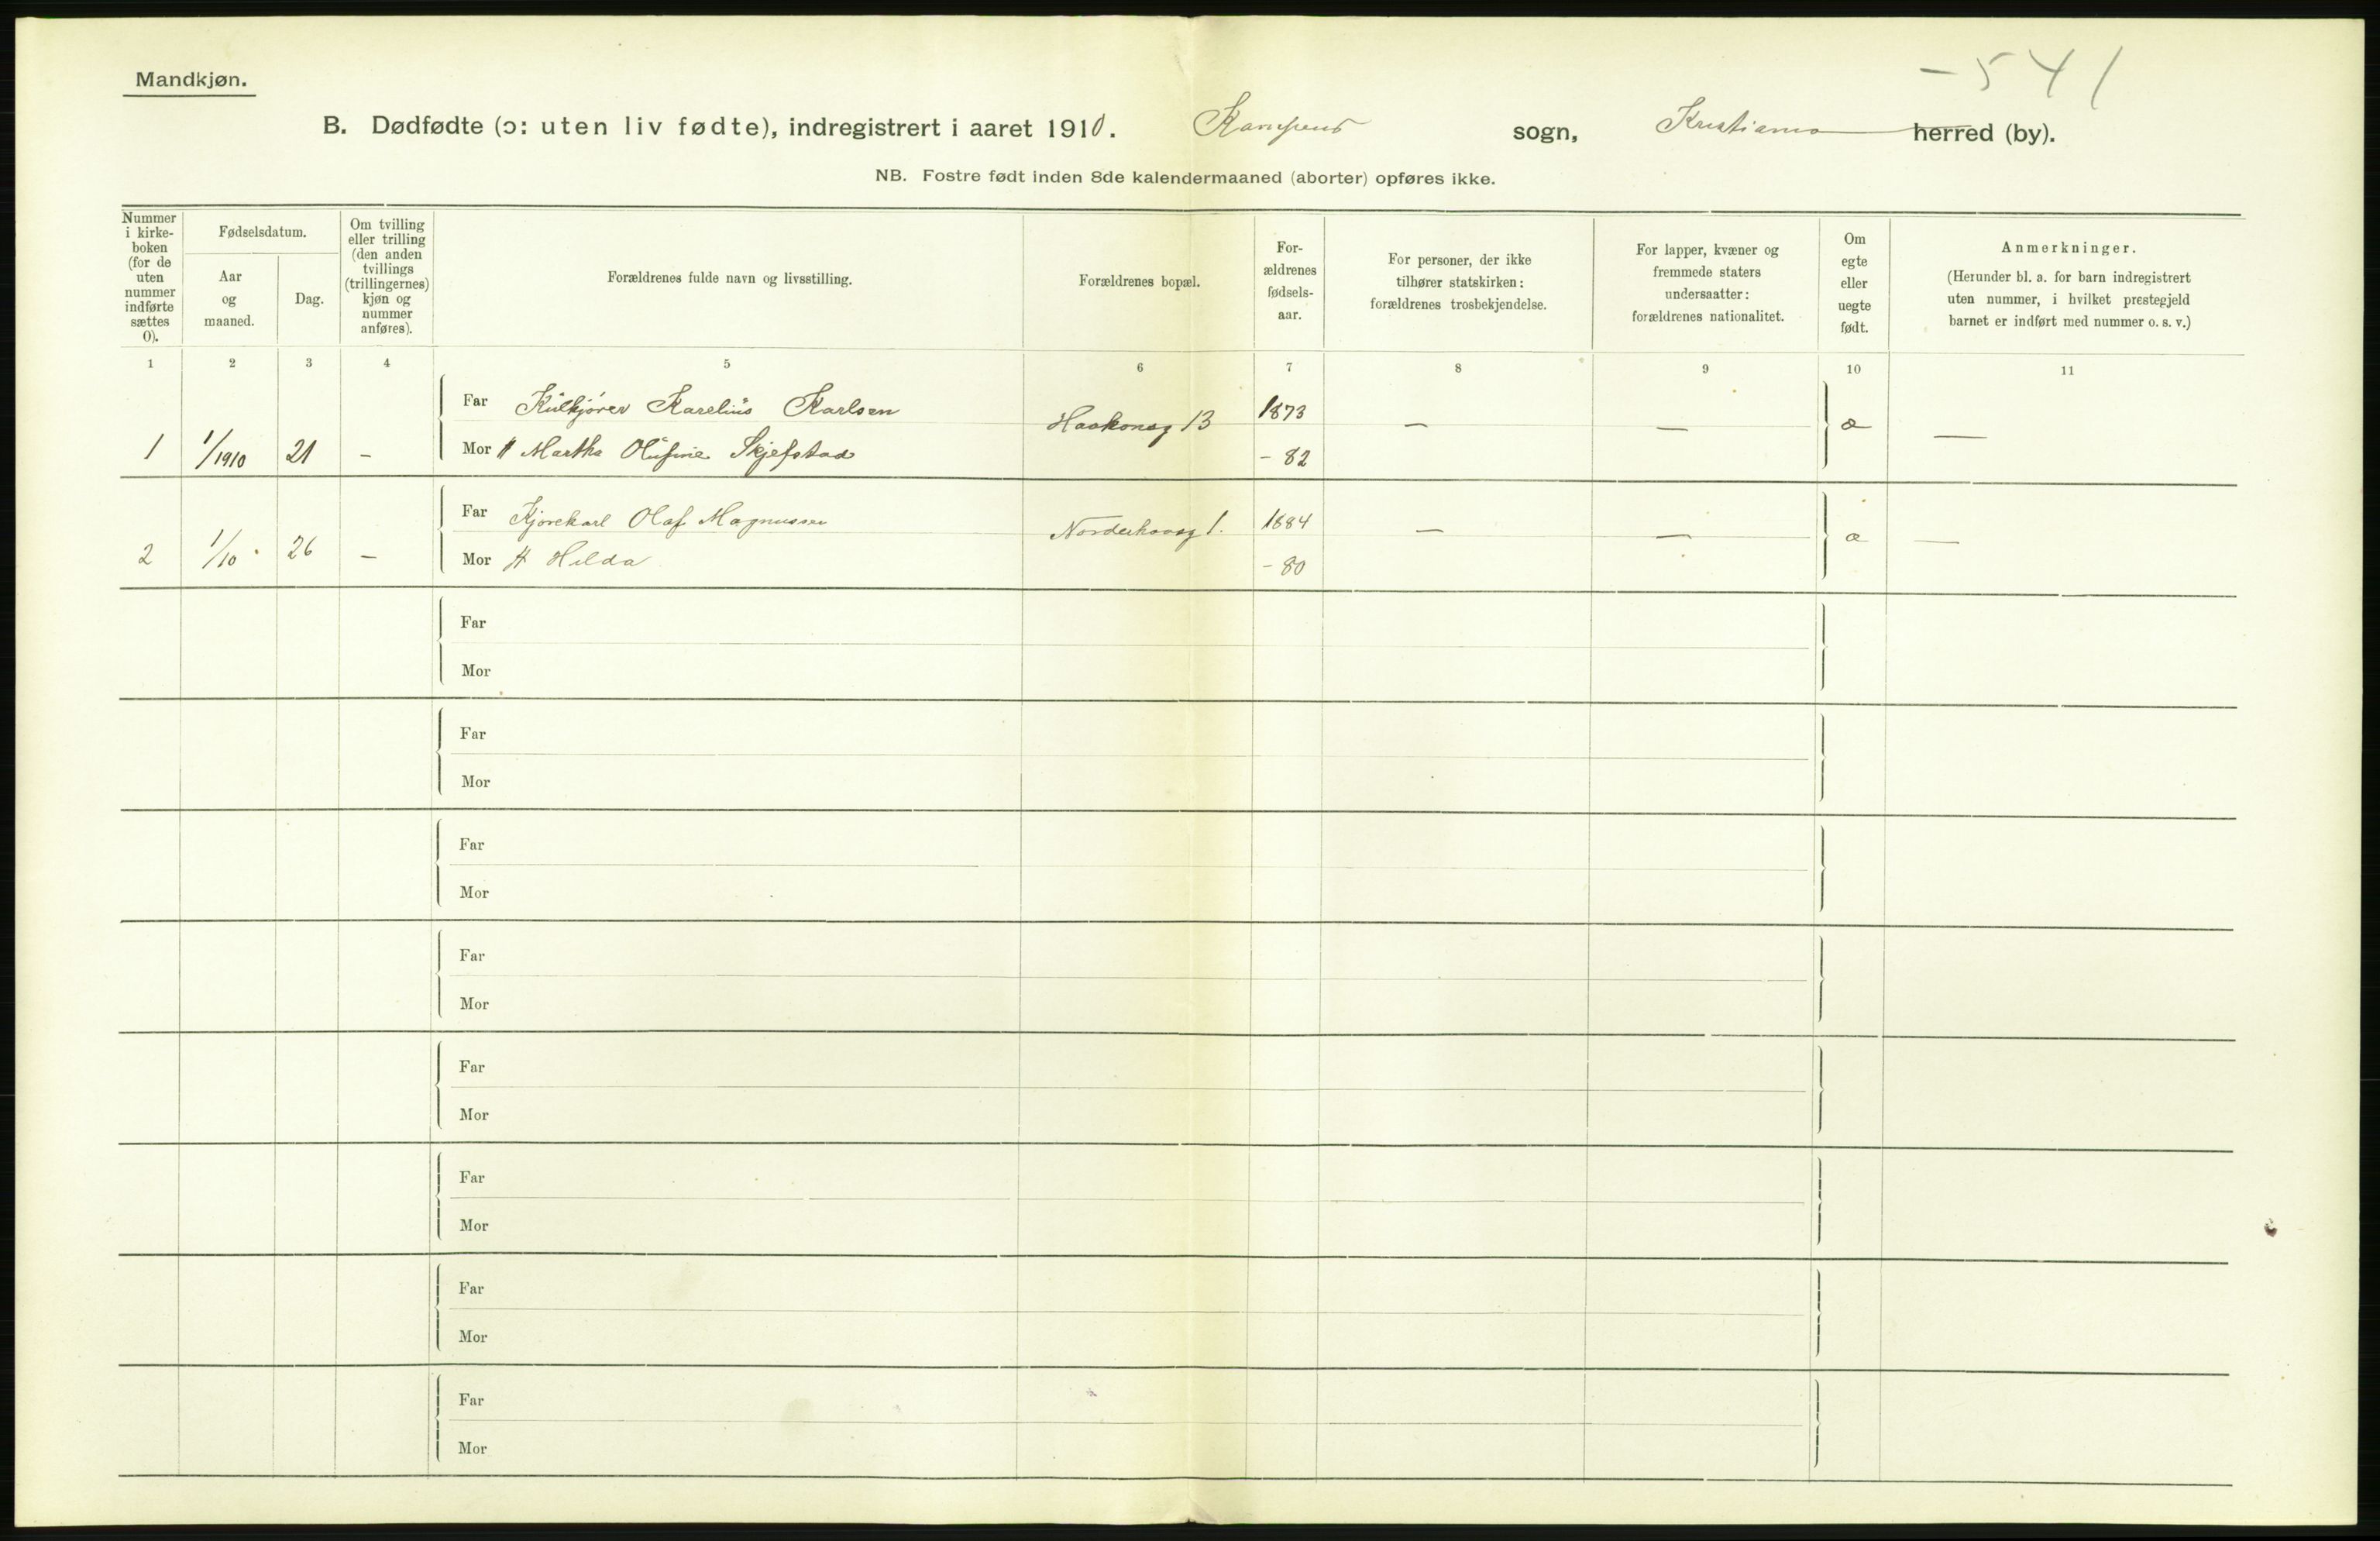 - 541
Mandkjøn.
B. Dødfødte (ɔ: uten liv fødte), indregistrert i aaret 1910. Kampens sogn, Kristiania herred (by).
NB. Fostre født inden 8de kalendermaaned (aborter) opføres ikke.
Nummer i kirke-boken (for de uten nummer indførte sættes 0).
Fødselsdatum.
Aar og maaned.
Dag.
Om tvilling eller trilling (den anden tvillings (trillingernes) kjøn og nummer anføres).
Forældrenes fulde navn og livsstilling.
Forældrenes bopæl.
For-ældrenes fødsels-aar.
For personer, der ikke tilhører statskirken: forældrenes trosbekjendelse.
For lapper, kvæner og fremmede staters undersaatter: forældrenes nationalitet.
Om egte eller uegte født.
Anmerkninger.
(Herunder bl. a. for barn indregistrert uten nummer, i hvilket prestegjeld barnet er indført med nummer o. s. v.)
1 2 3 4 5 6 7 8 9 10 11
Far Kulkjører Karelius Karlsen Haakonsg 13 1873 — — æ —
1 1/1910 21 - Mor H Martha Olufine Skjefstad - 82
Far Kjørekarl Olaf Magnussen Norderhovsg 1. 1884 — — æ —
2 1/10 26 - Mor H Hilda - 80
Far
Mor
Far
Mor
Far
Mor
Far
Mor
Far
Mor
Far
Mor
Far
Mor
Far
Mor